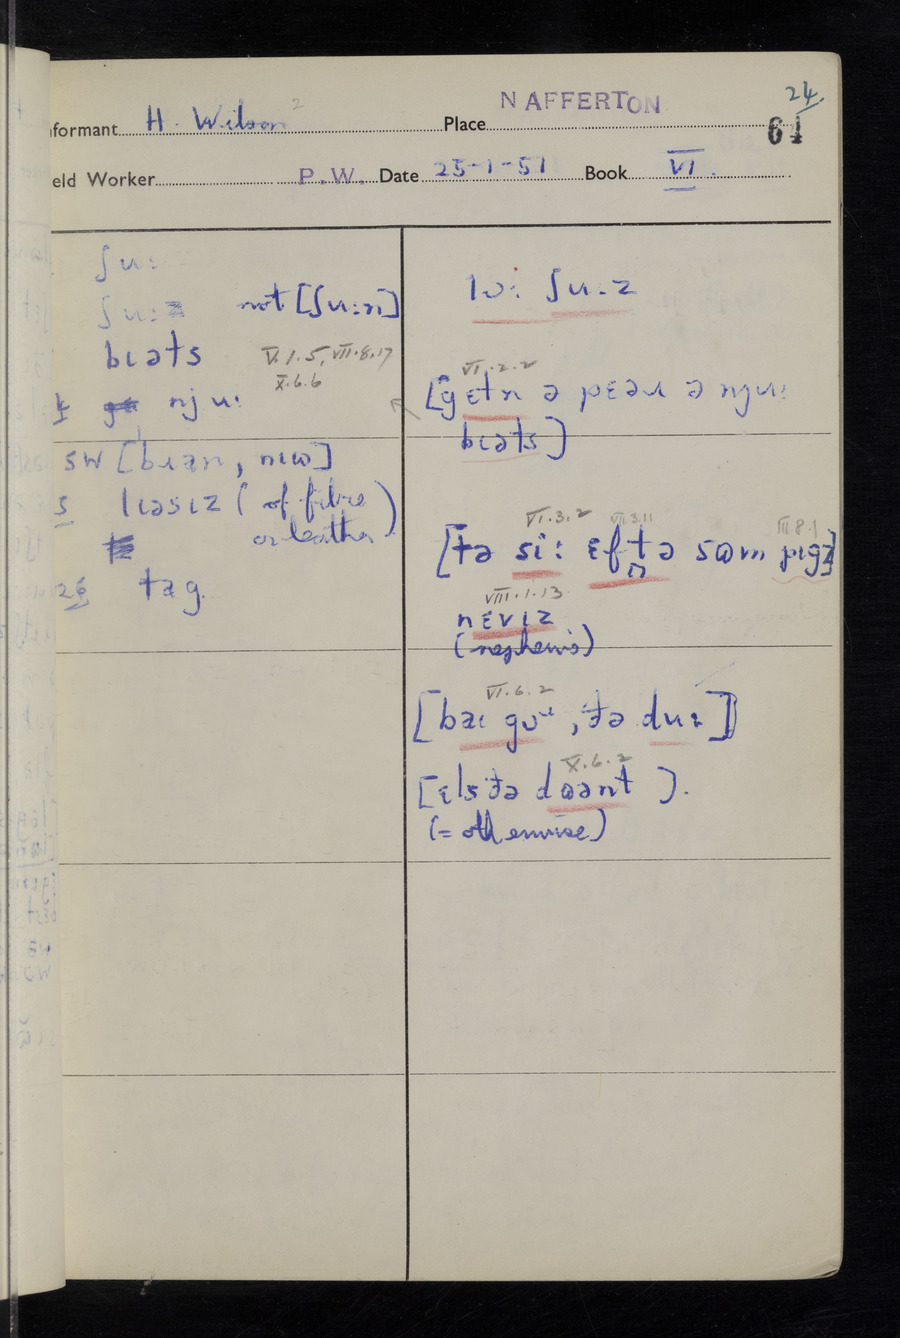 24.
NAFFERTON
formant H. Wilson 2 Place 64
eld Worker P.W. Date 25-1-51 Book VI.
ʃuː
ʃuːz not [ʃuːn]
bɪəts V.1.5, VII.8.17
X.6.6
njuː
sw [bɪən, nɪω]
s lɪəsɪz (of fibre
or leather)
tag.
lωː ʃuːz
VI.2.2
[gɛtn ə pɛəɹ ə njuː
bɪəts]
VI.3.2 VII.3.11 III.8.1
[tə siː ɛftə sωm pɪgz]
VIII.1.13
nɛvɪz
(nephews)
VI.6.2
X.6.2
(= otherwise)